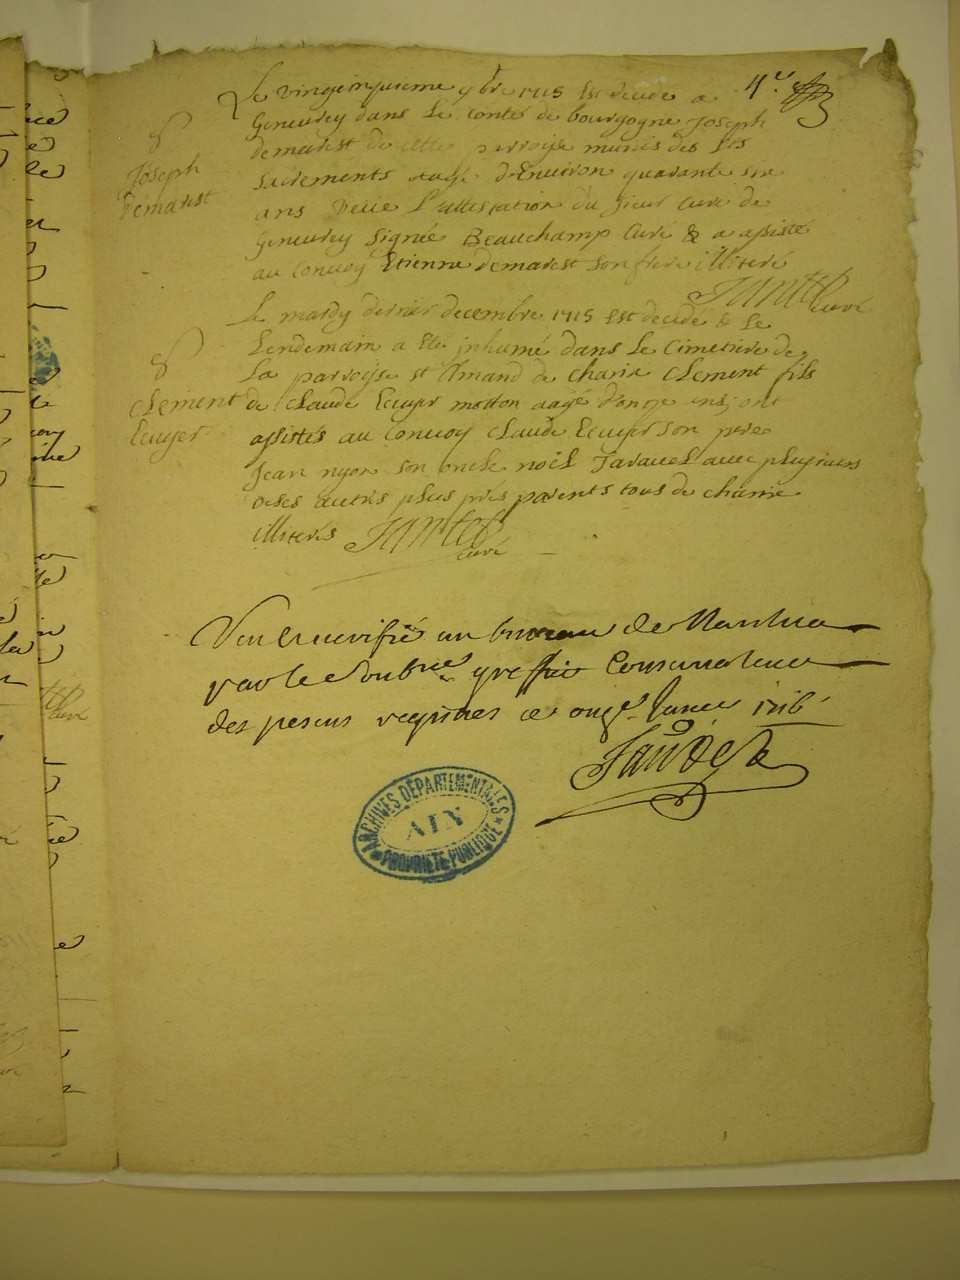 Le vingcinquieme 9bre 1715 Est decede a
Geneurey dans Le Conté de bourgogne Joseph
demarest de cette parroisse munis des Sts
Sacrements aagé d'Environ quarante six
ans Veue L'attestation du sieur Curé de
Geneurey Signée Beauchamp Curé & a assisté
au Convoy Etienne demarest son frere illiteré
curé
Joseph
Demarest
Le mardy dernier decembre 1715 Est decedé & Le
Lendemain a Eté inhumé dans Le Cimetiere de
La parroisse st Amand de Charix Clement fils
de Claude Ecuyer motton aagé d'onze ans; ont
assistés au Convoy Claude Ecuyer son pere
Jean nyon son oncle noël Jaravel avec plusieurs
de ses autres plus prés parents tous de charix
illiterés
curé
Clement
Ecuyer
Veu et verifié au bureau de Nantua
par le Soubne greffier Conservateur
des presens registres ce onze Janer 1716
ARCHIVES DÉPARTEMENTALES
AIN
PROPRIÉTÉ PUBLIQUE